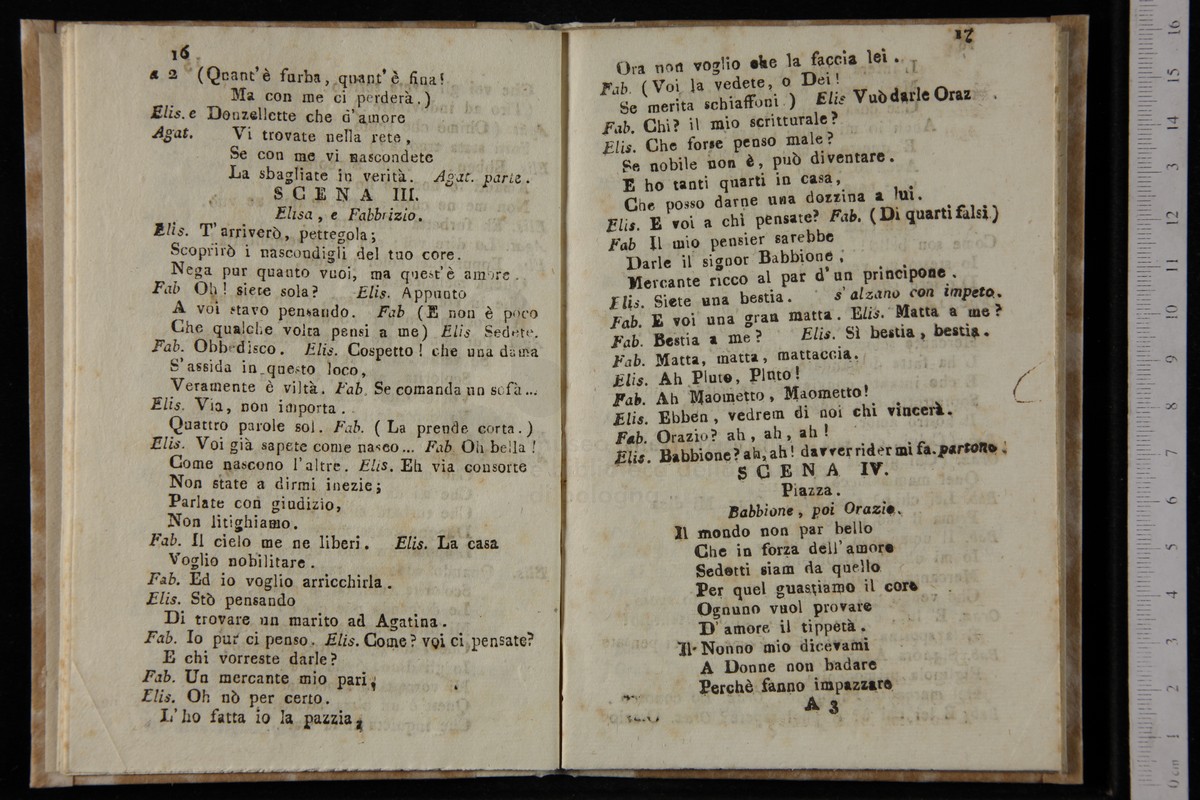 16
a 2 (Quant'è furba, quant'è fina!
Ma con me ci perderà.)
Elis. e Donzellette che d'amore
Agat. Vi trovate nella rete,
Se con me vi nascondete
La sbagliate in verità. Agat. parte.
SCENA III.
Elisa, e Fabbrizio.
Elis. T'arriverò, pettegola;
Scoprirò i nascondigli del tuo core.
Nega pur quanto vuoi, ma quest'è amore.
Fab Oh! siete sola? Elis. Appunto
A voi stavo pensando. Fab (E non è poco
Che qualche volta pensi a me) Elis Sedete.
Fab. Obbedisco. Elis. Cospetto! che una dama
S'assida in questo loco,
Veramente è viltà. Fab. Se comanda un sofà...
Elis. Via, non importa.
Quattro parole sol. Fab. (La prende corta.)
Elis. Voi già sapete come nasco... Fab Oh bella!
Come nascono l'altre. Elis. Eh via consorte
Non state a dirmi inezie;
Parlate con giudizio,
Non litighiamo.
Fab. Il cielo me ne liberi. Elis. La casa
Voglio nobilitare.
Fab. Ed io voglio arricchirla.
Elis. Stò pensando
Di trovare un marito ad Agatina.
Fab. Io pur ci penso. Elis. Come? voi ci pensate?
E chi vorreste darle?
Fab. Un mercante mio pari,
Elis. Oh nò per certo.
L'ho fatta io la pazzia,
17
Ora non voglio che la faccia lei.
Fab. (Voi la vedete, o Dei!
Se merita schiaffoni) Elis Vuò darle Oraz
Fab. Chi? il mio scritturale?
Elis. Che forse penso male?
Se nobile non è, può diventare.
E ho tanti quarti in casa,
Che posso darne una dozzina a lui.
Elis. E voi a chi pensate? Fab. (Di quarti falsi)
Fab Il mio pensier sarebbe
Darle il signor Babbione,
Mercante ricco al par d'un principone.
Elis. Siete una bestia. s'alzano con impeto.
Fab. E voi una gran matta. Elis. Matta a me?
Fab. Bestia a me? Elis. Sì bestia, bestia.
Fab. Matta, matta, mattaccia.
Elis. Ah Pluto, Pluto!
Fab. Ah Maometto, Maometto!
Elis. Ebben, vedrem di noi chi vincerà.
Fab. Orazio? ah, ah, ah!
Elis. Babbione? ah, ah! davver rider mi fa. partono.
SCENA IV.
Piazza.
Babbione, poi Orazio.
Il mondo non par bello
Che in forza dell'amore
Sedotti siam da quello
Per quel guastiamo il core
Ognuno vuol provare
D'amore il tippetà.
Il Nonno mio dicevami
A Donne non badare
Perchè fanno impazzare
A 3